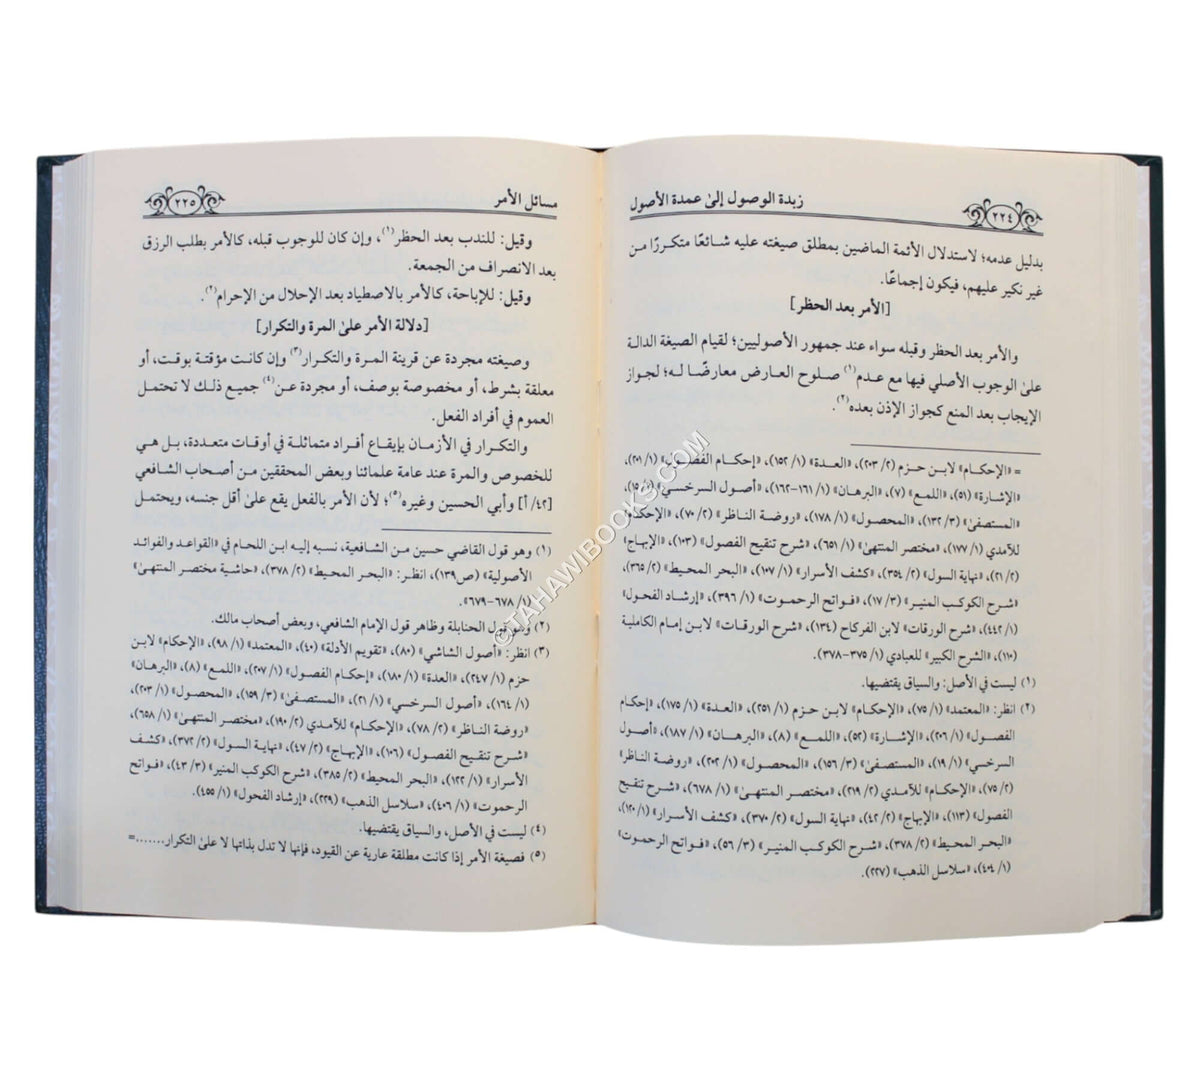 زبدة الوصول إلى عمدة الأصول
٢٢٤
بدليل عدمه؛ لاستدلال الأئمة الماضين بمطلق صيغته عليه شائعًا متكررًا من
غير نكير عليهم، فيكون إجماعًا.
[الأمر بعد الحظر]
والأمر بعد الحظر وقبله سواء عند جمهور الأصوليين؛ لقيام الصيغة الدالة
على الوجوب الأصلي فيها مع عدم(١) صلوح العارض معارضًا له؛ لجواز
الإيجاب بعد المنع كجواز الإذن بعده(٢).
= «الإحكام» لابن حزم (٢/ ٢٠٣)، «العدة» (١/ ١٥٢)، «إحكام الفصول» (١/ ٢٠١)،
«الإشارة» (٥١)، «اللمع» (٧)، «البرهان» (١/ ١٦١-١٦٢)، «أصول السرخسي» (١/ ١٥)،
«المستصفى» (٣/ ١٣٢)، «المحصول» (١/ ١٧٨)، «روضة الناظر» (٢/ ٧٠)، «الإحكام»
للآمدي (١/ ١٧٧)، «مختصر المنتهى» (١/ ٦٥١)، «شرح تنقيح الفصول» (١٠٣)، «الإبهاج»
(٢/ ٢١)، «نهاية السول» (٢/ ٣٥٤)، «كشف الأسرار» (١/ ١٠٧)، «البحر المحيط» (٢/ ٣٦٥)،
«شرح الكوكب المنير» (٣/ ١٧)، «فواتح الرحموت» (١/ ٣٩٦)، «إرشاد الفحول»
(١/ ٤٤٢)، «شرح الورقات» لابن الفركاح (١٣٤)، «شرح الورقات» لابن إمام الكاملية
(١١٠)، «الشرح الكبير» للعبادي (١/ ٣٧٥-٣٧٨).
(١) ليست في الأصل: والسياق يقتضيها.
(٢) انظر: «المعتمد» (١/ ٧٥)، «الإحكام» لابن حزم (١/ ٢٥١)، «العدة» (١/ ١٧٥)، «إحكام
الفصول» (١/ ٢٠٦)، «الإشارة» (٥٢)، «اللمع» (٨)، «البرهان» (١/ ١٨٧)، «أصول
السرخسي» (١/ ١٩)، «المستصفى» (٣/ ١٥٦)، «المحصول» (١/ ٢٠٢)، «روضة الناظر»
(٢/ ٧٥)، «الإحكام» للآمدي (٢/ ٢١٩)، «مختصر المنتهى» (١/ ٦٧٨)، «شرح تنقيح
الفصول» (١١٣)، «الإبهاج» (٢/ ٤٢)، «نهاية السول» (٢/ ٣٧٠)، «كشف الأسرار» (١/ ١٢٠)،
«البحر المحيط» (٢/ ٣٧٨)، «شرح الكوكب المنير» (٣/ ٥٦)، «فواتح الرحموت»
(١/ ٤٠٤)، «سلاسل الذهب» (٢٢٧).
مسائل الأمر
٢٢٥
وقيل: للندب بعد الحظر(١)، وإن كان للوجوب قبله، كالأمر بطلب الرزق
بعد الانصراف من الجمعة.
وقيل: للإباحة، كالأمر بالاصطياد بعد الإحلال من الإحرام(٢).
[دلالة الأمر على المرة والتكرار]
وصيغته مجردة عن قرينة المرة والتكرار(٣) وإن كانت مؤقتة بوقت، أو
معلقة بشرط، أو مخصوصة بوصف، أو مجردة عن(٤) جميع ذلك لا تحتمل
العموم في أفراد الفعل.
والتكرار في الأزمان بإيقاع أفراد متماثلة في أوقات متعددة، بل هي
للخصوص والمرة عند عامة علمائنا وبعض المحققين من أصحاب الشافعي
[٤٢/ أ] وأبي الحسين وغيره(٥)؛ لأن الأمر بالفعل يقع على أقل جنسه، ويحتمل
(١) وهو قول القاضي حسين من الشافعية، نسبه إليه ابن اللحام في «القواعد والفوائد
الأصولية» (ص١٣٩)، انظر: «البحر المحيط» (٢/ ٣٧٨)، «حاشية مختصر المنتهى»
(١/ ٦٧٨-٦٧٩).
(٢) وهو قول الحنابلة وظاهر قول الإمام الشافعي، وبعض أصحاب مالك.
(٣) انظر: «أصول الشاشي» (٨٠)، «تقويم الأدلة» (٤٠)، «المعتمد» (١/ ٩٨)، «الإحكام» لابن
حزم (١/ ٢٤٧)، «العدة» (١/ ١٨٠)، «إحكام الفصول» (١/ ٢٠٧)، «اللمع» (٨)، «البرهان»
(١/ ١٦٤)، «أصول السرخسي» (١/ ٢١)، «المستصفى» (٣/ ١٥٩)، «المحصول» (١/ ٢٠٣)،
«روضة الناظر» (٢/ ٧٨)، «الإحكام» للآمدي (٢/ ١٩٠)، «مختصر المنتهى» (١/ ٦٥٨)،
«شرح تنقيح الفصول» (١٠٦)، «الإبهاج» (٢/ ٤٧)، «نهاية السول» (٢/ ٣٧٢)، «كشف
الأسرار» (١/ ١٢٢)، «البحر المحيط» (٢/ ٣٨٥)، «شرح الكوكب المنير» (٣/ ٤٣)، «فواتح
الرحموت» (١/ ٤٠٦)، «سلاسل الذهب» (٢٢٩)، «إرشاد الفحول» (١/ ٤٥٥).
(٤) ليست في الأصل، والسياق يقتضيها.
(٥) فصيغة الأمر إذا كانت مطلقة عارية عن القيود، فإنها لا تدل بذاتها لا على التكرار.......=
©TAHAWIBOOKS.COM